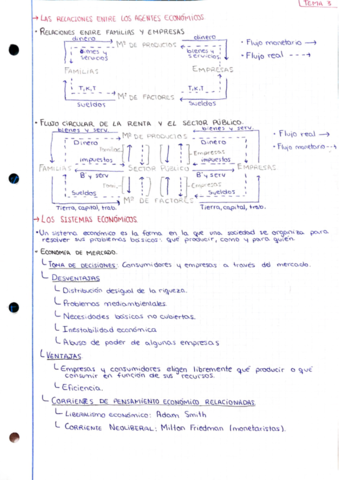 TEMA 3
→ LAS RELACIONES ENTRE LOS AGENTES ECONÓMICOS.
• RELACIONES ENTRE FAMILIAS Y EMPRESAS
dinero
dinero
Mº DE PRODUCTOS
• Flujo monetario →
Bienes y servicios
bienes y servicios
• Flujo real --→
FAMILIAS
EMPRESAS
T,K,T
T,K,T
Mº DE FACTORES
Sueldos
Sueldos
• FLUJO CIRCULAR DE LA RENTA Y EL SECTOR PÚBLICO.
bienes y serv.
bienes y serv.
Mº DE PRODUCTOS
• Flujo real →
Dinero
Dinero
• Flujo monetario --→
Familias
Empresas
impuestos
impuestos
FAMILIAS
SECTOR PÚBLICO
EMPRESAS
B y serv
B y serv
Empresas
Sueldos
Sueldos
Mº DE FACTORES
Tierra, capital, trab.
Tierra, capital, trab.
→ LOS SISTEMAS ECONÓMICOS
• Un sistema económico es la forma en la que una sociedad se organiza para
resolver sus problemas básicos: qué producir, cómo y para quién.
• ECONOMÍA DE MERCADO.
TOMA DE DECISIONES: Consumidores y empresas a través del mercado.
DESVENTAJAS
Distribución desigual de la riqueza.
Problemas medioambientales.
Necesidades básicas no cubiertas.
Inestabilidad económica
Abuso de poder de algunas empresas
VENTAJAS
Empresas y consumidores eligen libremente qué producir o qué
consumir en función de sus recursos.
Eficiencia.
CORRIENTES DE PENSAMIENTO ECONÓMICO RELACIONADAS
LIBERALISMO ECONÓMICO: Adam Smith
CORRIENTE NEOLIBERAL: Milton Friedman (monetaristas).